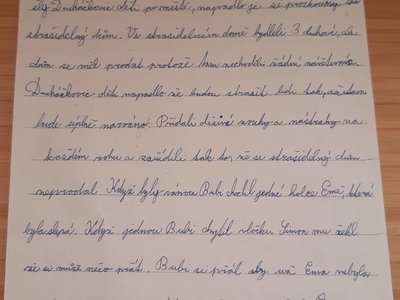 sly Ducháčkovic děti po městě, napadlo je se prozkoumat ten
strašidelný dům. Ve strašidelném domě bydleli 3 duchové, ale
dům se měl prodat protože tam nechodila žádná návštěvnice.
Ducháčkovic děti napadlo že budou strašit lidi tak, aby tam
bude úplně narváno. Přidali děsivé zvuky a nástrahy na
každém rohu a zařídili tak to, že se strašidelný dům
neprodal. Když byly vánoce Bubi chtěl jedné holce Emě, která
byla slepá. Když jednou Bubi chytil vločku Simon mu řekl
že si může něco přát. Bubi si přál aby už Ema nebyla